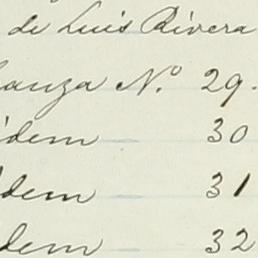 de Luis Rivera
anza Nº 29.
ídem 30
ídem 31
dem 32